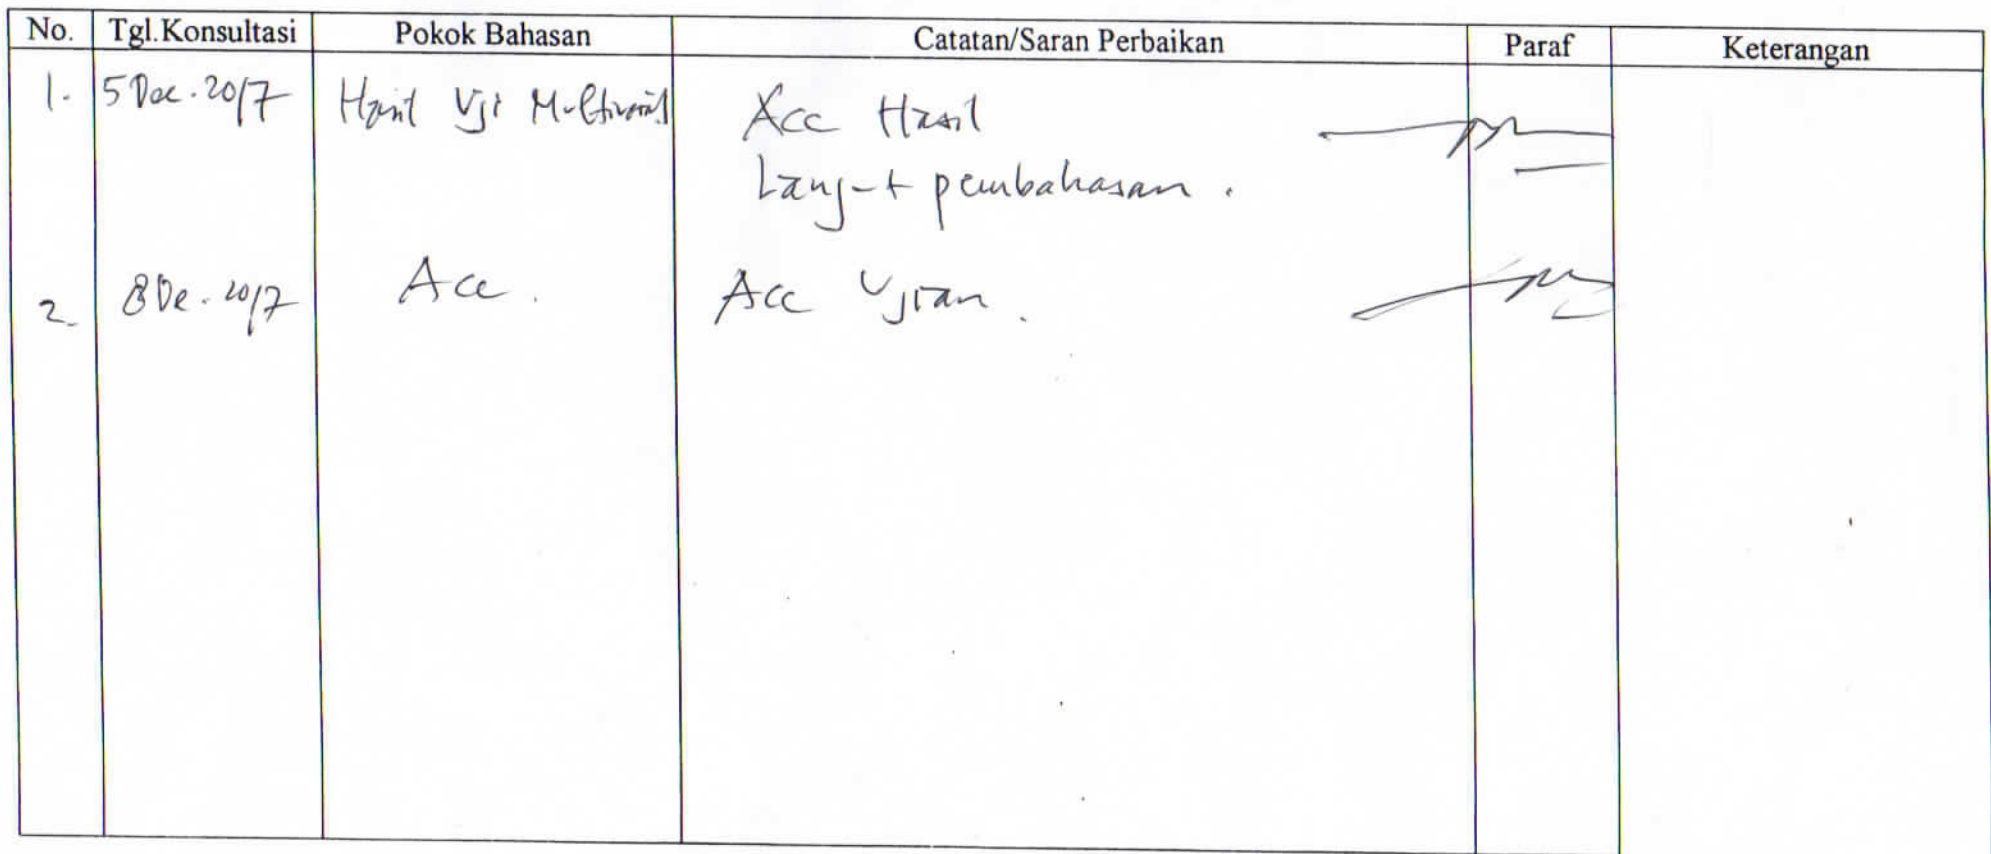 No. Tgl.Konsultasi Pokok Bahasan Catatan/Saran Perbaikan Paraf Keterangan
1. 5 Dec. 2017 Hasil Uji Multivariat Acc Hasil
Lanjut pembahasan.
2. 8 De. 2017 Acc. Acc Ujian.